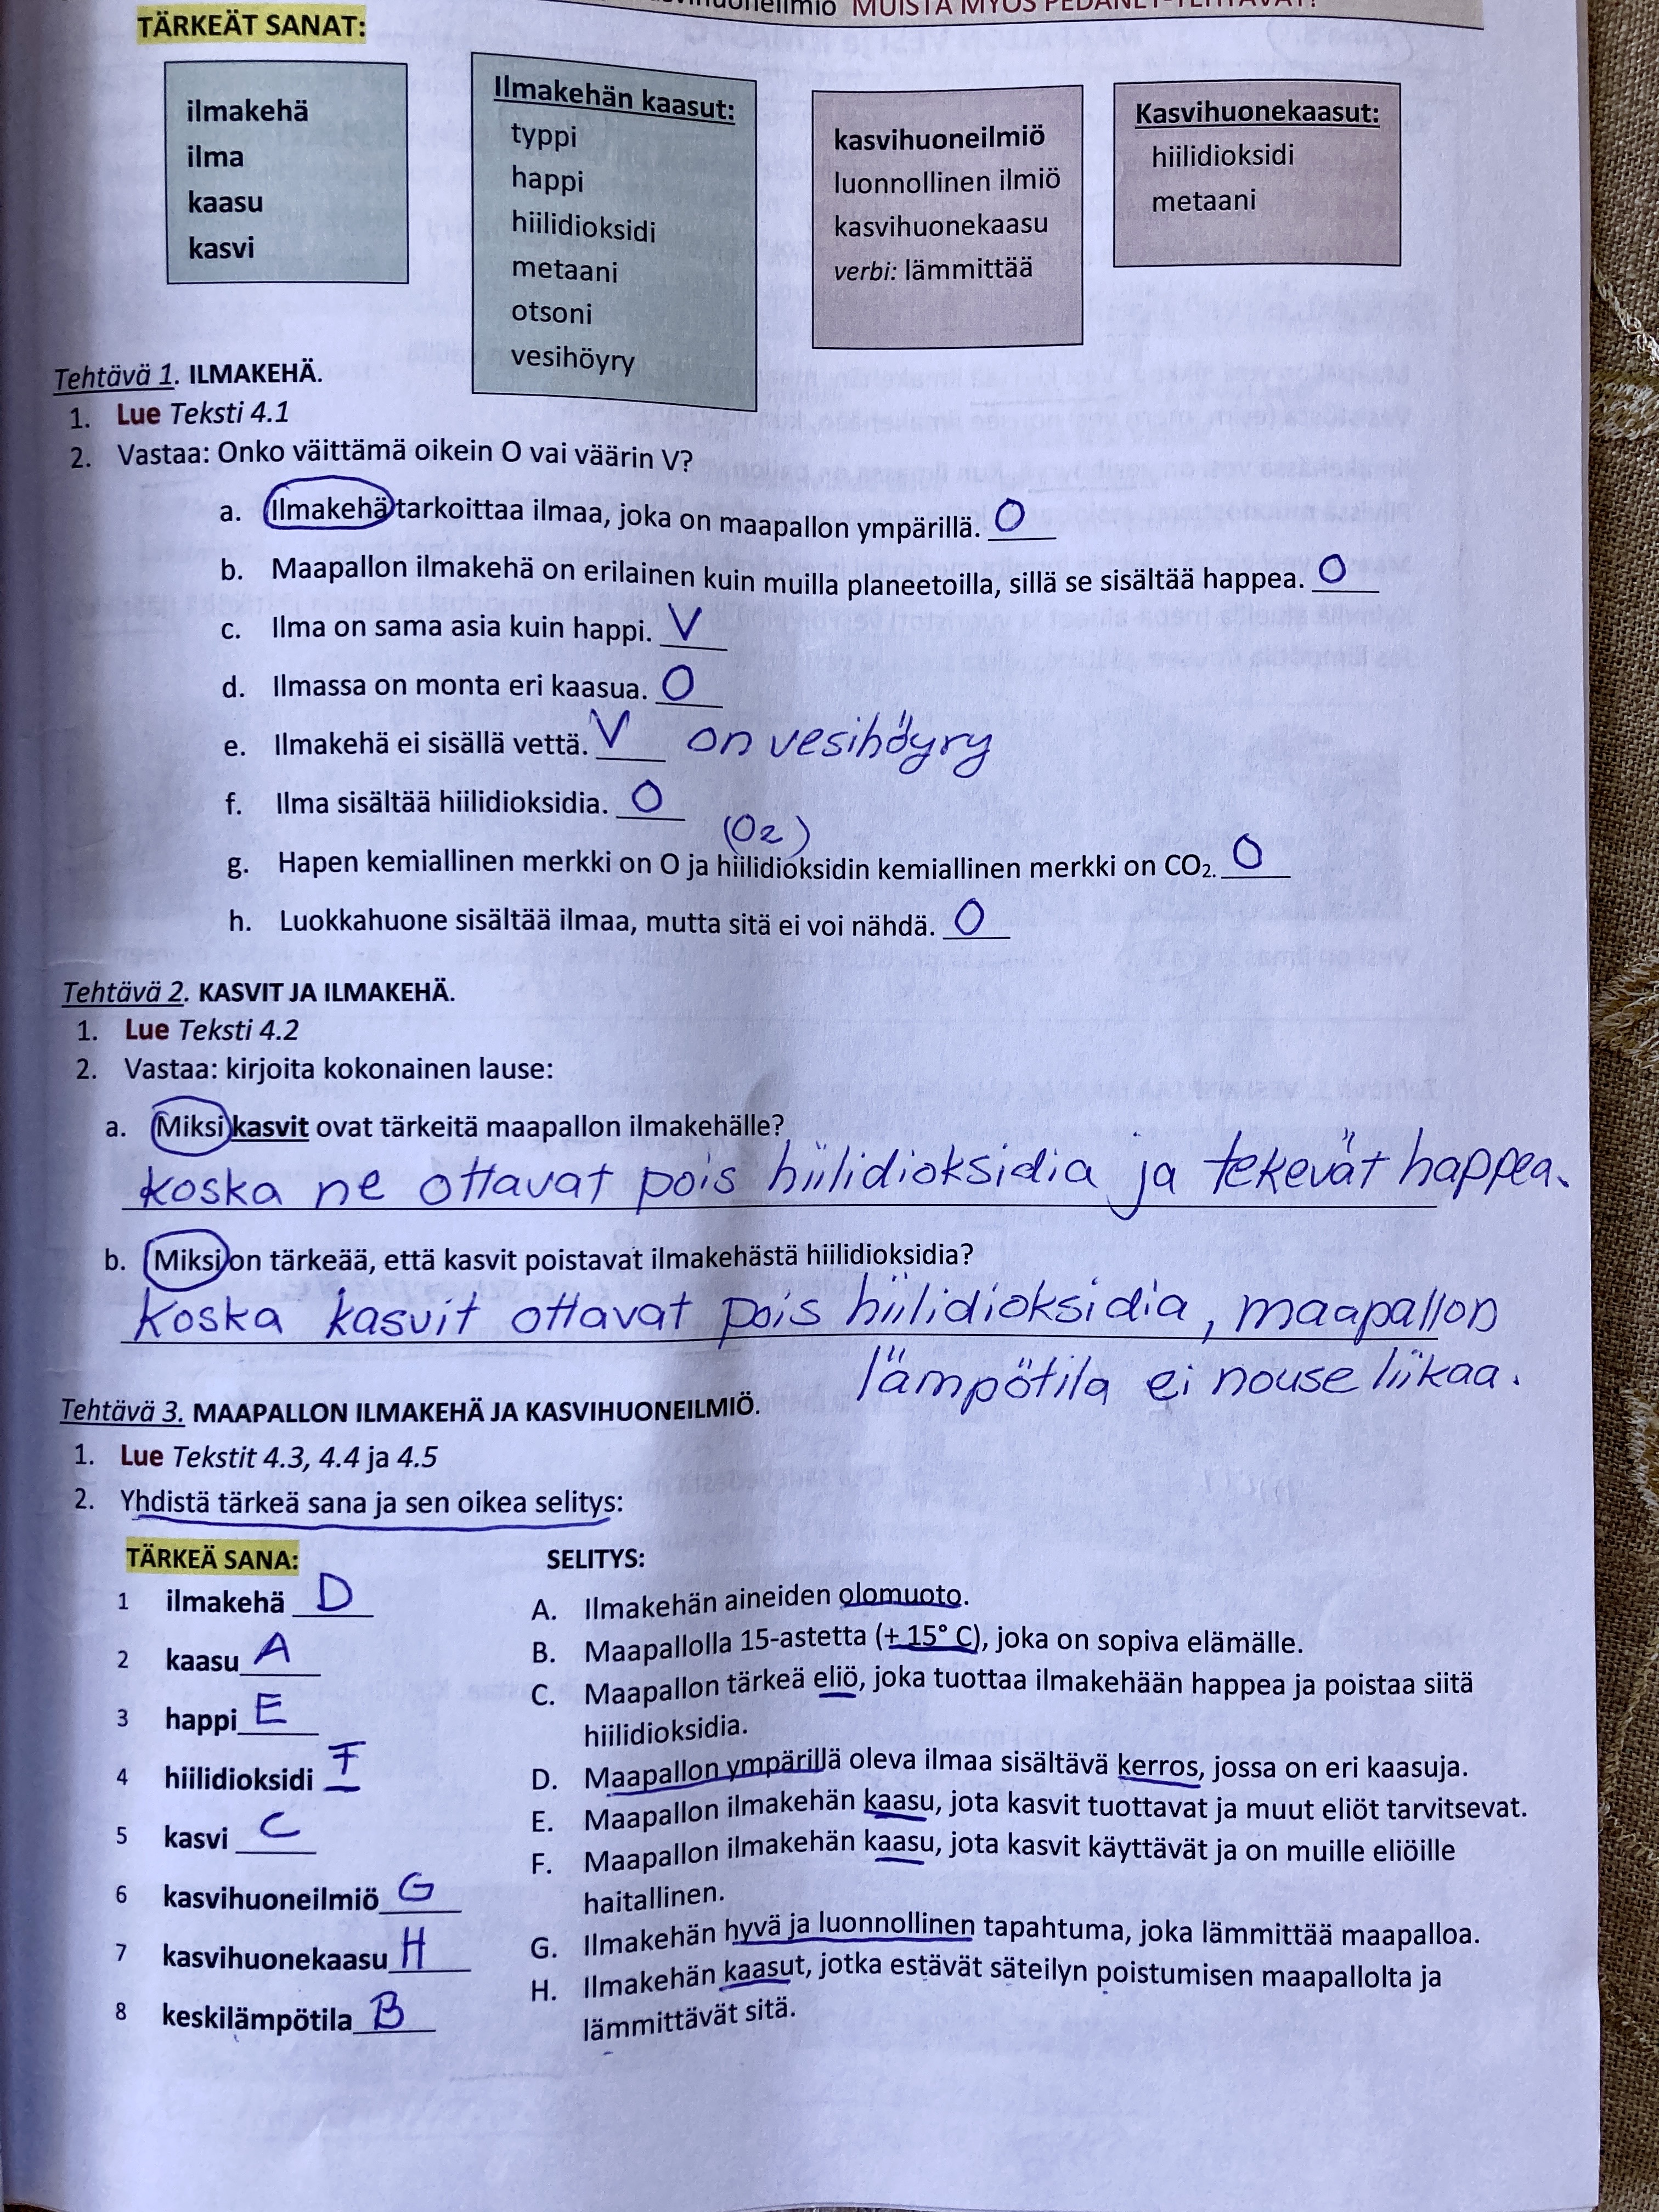 MUISTA MYÖS PEDANET-TEHTÄVÄT!
TÄRKEÄT SANAT:
ilmakehä
ilma
kaasu
kasvi
Ilmakehän kaasut:
typpi
happi
hiilidioksidi
metaani
otsoni
vesihöyry
kasvihuoneilmiö
luonnollinen ilmiö
kasvihuonekaasu
verbi: lämmittää
Kasvihuonekaasut:
hiilidioksidi
metaani
Tehtävä 1. ILMAKEHÄ.
1. Lue Teksti 4.1
2. Vastaa: Onko väittämä oikein O vai väärin V?
a. Ilmakehä tarkoittaa ilmaa, joka on maapallon ympärillä. O
b. Maapallon ilmakehä on erilainen kuin muilla planeetoilla, sillä se sisältää happea. O
c. Ilma on sama asia kuin happi. V
d. Ilmassa on monta eri kaasua. O
e. Ilmakehä ei sisällä vettä. V on vesihöyry
f. Ilma sisältää hiilidioksidia. O
(O2)
g. Hapen kemiallinen merkki on O ja hiilidioksidin kemiallinen merkki on CO2. O
h. Luokkahuone sisältää ilmaa, mutta sitä ei voi nähdä. O
Tehtävä 2. KASVIT JA ILMAKEHÄ.
1. Lue Teksti 4.2
2. Vastaa: kirjoita kokonainen lause:
a. Miksi kasvit ovat tärkeitä maapallon ilmakehälle?
koska ne ottavat pois hiilidioksidia ja tekevät happea.
b. Miksi on tärkeää, että kasvit poistavat ilmakehästä hiilidioksidia?
Koska kasvit ottavat pois hiilidioksidia, maapallon
lämpötila ei nouse liikaa.
Tehtävä 3. MAAPALLON ILMAKEHÄ JA KASVIHUONEILMIÖ.
1. Lue Tekstit 4.3, 4.4 ja 4.5
2. Yhdistä tärkeä sana ja sen oikea selitys:
TÄRKEÄ SANA:
1 ilmakehä D
2 kaasu A
3 happi E
4 hiilidioksidi F
5 kasvi C
6 kasvihuoneilmiö G
7 kasvihuonekaasu H
8 keskilämpötila B
SELITYS:
A. Ilmakehän aineiden olomuoto.
B. Maapallolla 15-astetta (+ 15° C), joka on sopiva elämälle.
C. Maapallon tärkeä eliö, joka tuottaa ilmakehään happea ja poistaa siitä
hiilidioksidia.
D. Maapallon ympärillä oleva ilmaa sisältävä kerros, jossa on eri kaasuja.
E. Maapallon ilmakehän kaasu, jota kasvit tuottavat ja muut eliöt tarvitsevat.
F. Maapallon ilmakehän kaasu, jota kasvit käyttävät ja on muille eliöille
haitallinen.
G. Ilmakehän hyvä ja luonnollinen tapahtuma, joka lämmittää maapalloa.
H. Ilmakehän kaasut, jotka estävät säteilyn poistumisen maapallolta ja
lämmittävät sitä.